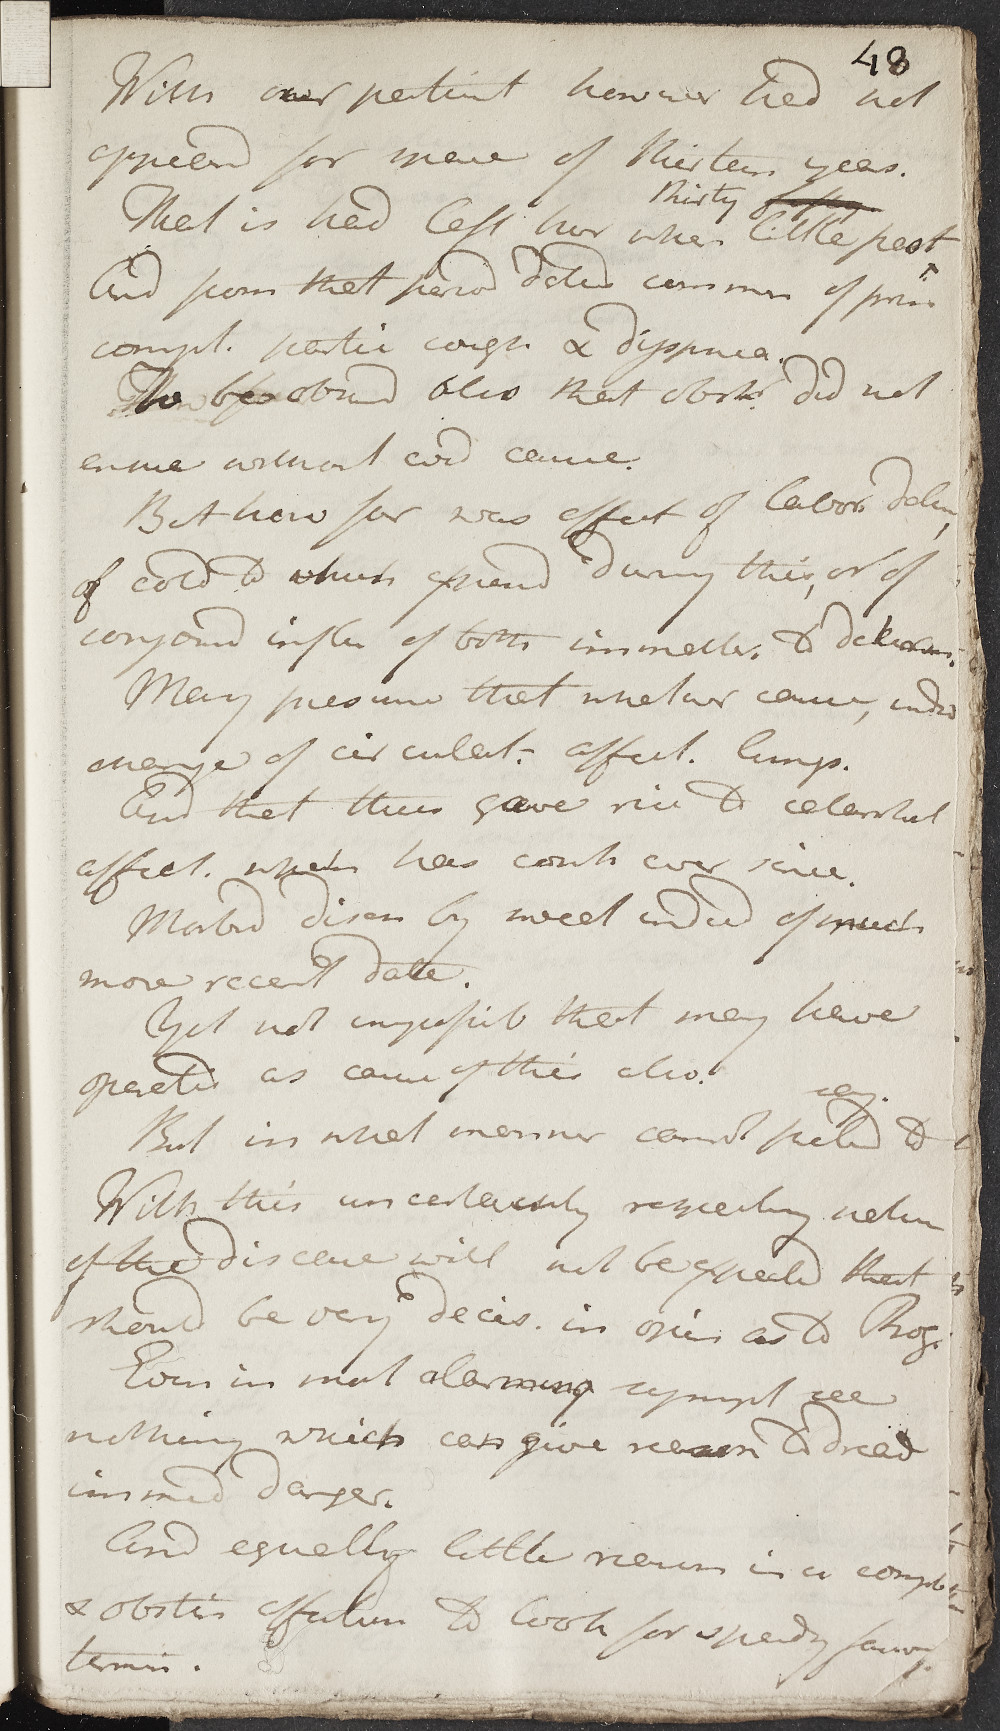 48
With our patient however had not
appeard for more of thirteen years.
thirty
That is had left her when little past
And from that period dates commen of prin
compl. partic cough & dyspnœa.
To be obsvd also that obstr. did not
ensue without evid cause.
But how far was effect of labor
of cold to which exposed during this, or of
conjoind influ of both immater. to determ.
May presume that whatever cause, indu
change of circulat. affect. lungs.
And that thus gave rise to catarrhal
affect. which has contd ever since.
Morbid disch by indeed of much
more recent date.
Yet not impossib that may have
operatd as cause of this also.
say.
But in what manner cannot pretend to
With this uncertainty respecting nature
of the disease will not be expected that
should be very decis. in opin as to Prog.
Even in most alarming sympt see
nothing which can give reason to dread
immed danger.
And equally little reason in a complic
& obstin affection to look for speedy favor
termin.